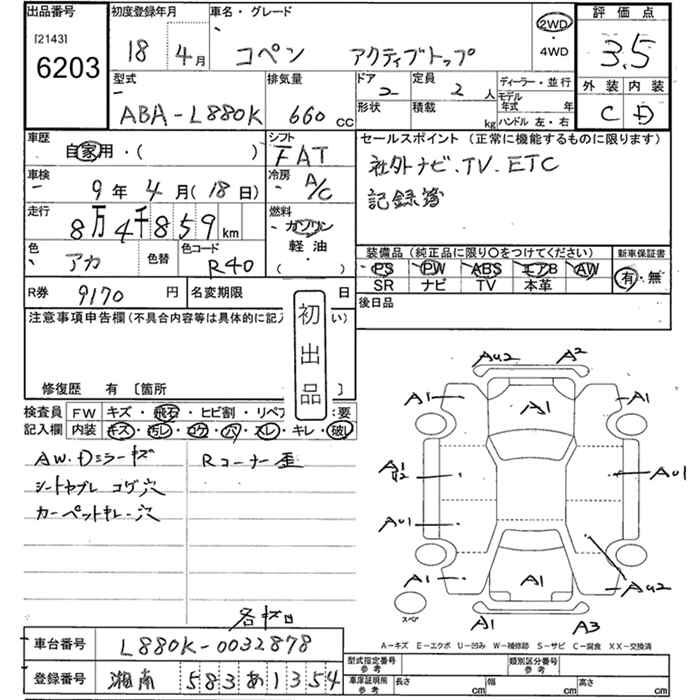 出品番号
[2143]
6203
初度登録年月
18 4月
車名・グレード
コペン アクティブトップ
2WD
・
4WD
評価点
3.5
外装 内装
C D
型式
ABA-L880K
排気量
660 cc
ドア
2
定員
2 人
形状
積載
kg
ディーラー・並行
モデル年式 年
ハンドル 左・右
車歴
自家用・( )
シフト
FAT
車検
9年4月(18日)
冷房
A/C
走行
8万4千859km
燃料
ガソリン
軽油
( )
色
アカ
色替
色コード
R40
セールスポイント（正常に機能するものに限ります）
社外ナビ.TV.ETC
記録簿
装備品（純正品に限り〇をつけてください）
PS PW ABS エアB AW
SR ナビ TV 本革
新車保証書
有・無
R券 9170 円
名変期限 日
後日品
注意事項申告欄（不具合内容等は具体的に記入 い）
初出品
修復歴 有 〔箇所 〕
検査員記入欄
FW キズ・飛石・ヒビ割・リペア :要
内装 キズ・汚レ・コゲ・穴・スレ・キレ・破レ
AW.Dミラーキズ
Rコーナー歪
シートヤブレ コゲ穴
カーペットキレ・穴
各キズ凹
AU2 A2
A1 A1 A1
A1
U2
AU1
AU1
A1 A1 AU2
スペア
A1 A3
A－キズ E－エクボ U－凹み W－補修跡 S－サビ C－腐食 XX－交換済
車台番号 L880K-0032878
登録番号 湘南 583 あ 1354
型式指定番号 参考
類別区分番号 参考
車庫証明所 参考
長さ cm
幅 cm
高さ cm